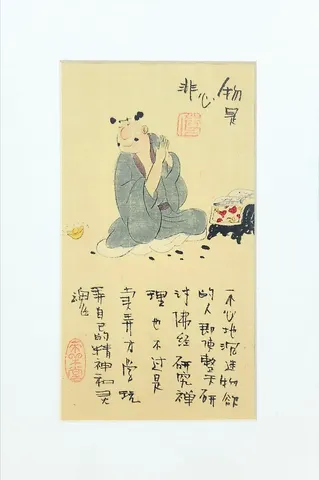 物是
心
非
一个心地沉迷物欲
的人即使整天研
讨佛经研究禅
理也不过是
卖弄才学玩
弄自己的精神和灵
魂